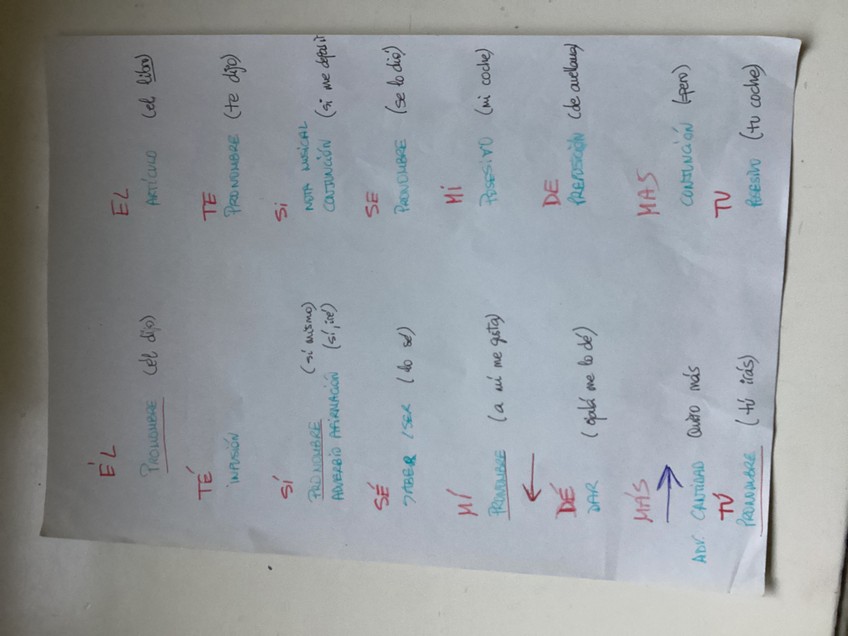 ÉL
PRONOMBRE (él dijo)
EL
ARTÍCULO (el libro)
TÉ
INFUSIÓN
TE
PRONOMBRE (te dijo)
SÍ
PRONOMBRE (sí mismo)
ADVERBIO AFIRMACIÓN (sí, iré)
SI
NOTA MUSICAL
CONJUNCIÓN (si me
SÉ
SABER / SER (lo sé)
SE
PRONOMBRE (se lo dio)
MÍ
PRONOMBRE (a mí me gusta)
MI
POSESIVO (mi coche)
DÉ
DAR (ojalá me lo dé)
DE
PREPOSICIÓN (de avellana)
MÁS
ADV. CANTIDAD Quiero más
MAS
CONJUNCIÓN (=pero)
TÚ
PRONOMBRE (tú irás)
TU
POSESIVO (tu coche)